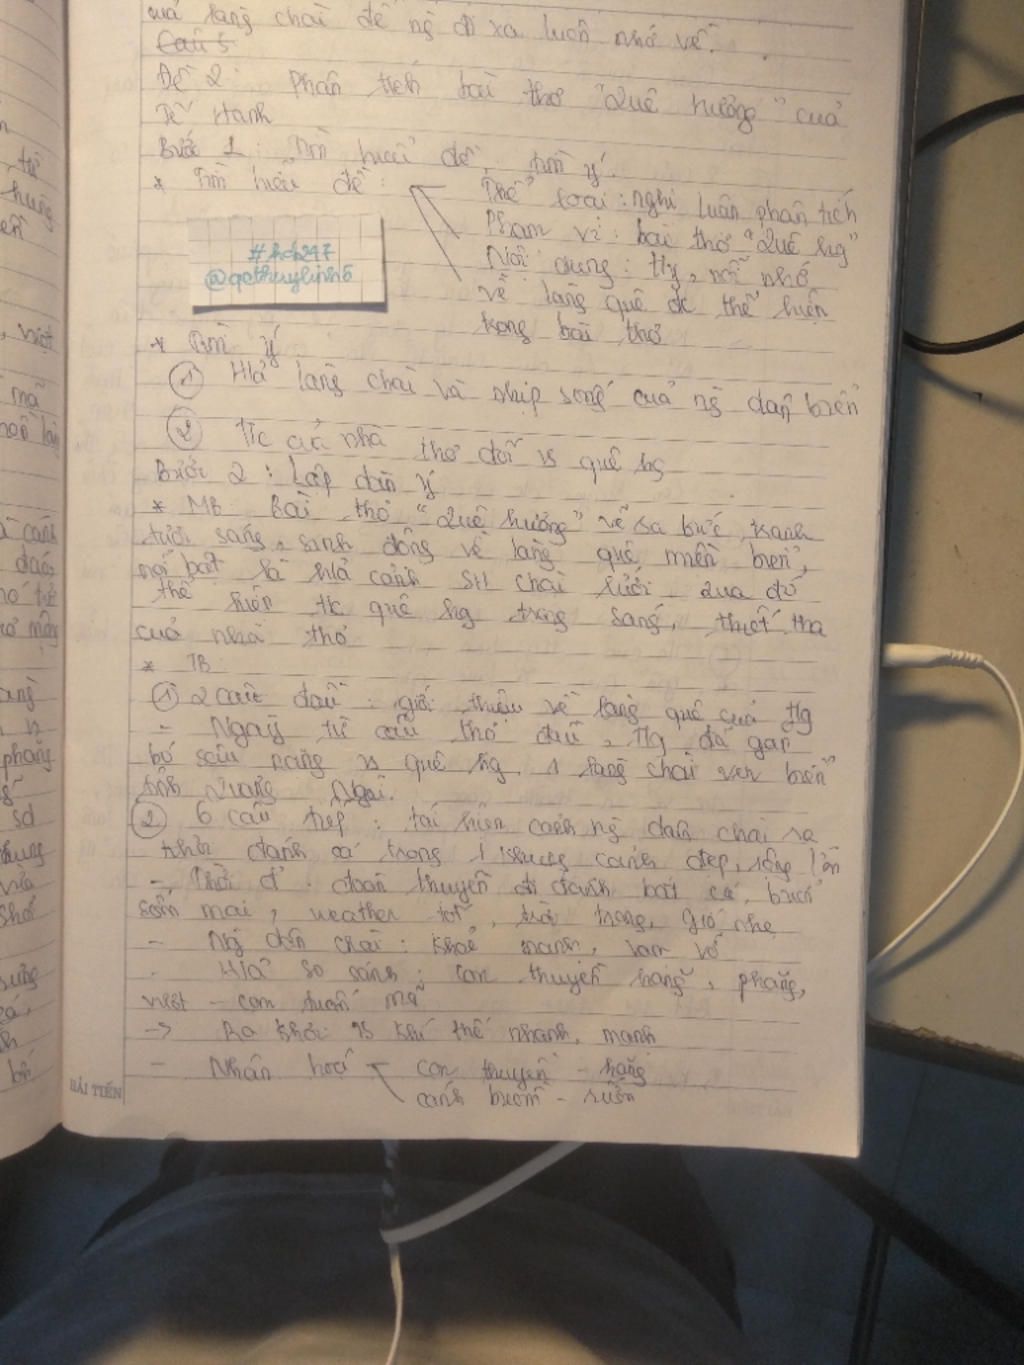 quả làng chài để ng đi xa luôn nhớ về.
Câu 5
Đề 2: Phân tích bài thơ "Quê hương" của
Tế Hanh
Bước 1: Tìm hiểu đề, tìm ý.
* Tìm hiểu đề:
Thể loại: nghị luận phân tích
Phạm vi: bài thơ "Quê hg"
Nội dung: ty, nỗi nhớ
về làng quê đc thể hiện
trong bài thơ
#hch247
@qethuylinh5
* Tìm ý
① H/ả làng chài và nhịp sống của ng dân biển
② T/c của nhà thơ đối vs quê hg
Bước 2: Lập dàn ý
* MB: Bài thơ "Quê hương" vẽ ra bức tranh
tươi sáng, sinh động về làng quê miền biển,
nổi bật là h/ả cảnh SH chài lưới. Qua đó
thể hiện tc quê hg trong sáng, thiết tha
của nhà thơ
* TB:
① 2 câu đầu: giới thiệu về làng quê của t/g
- Ngay từ câu thơ đầu, t/g đã gắn
bó sâu nặng vs quê hg, 1 làng chài ven biển
tỉnh Quảng Ngãi.
② 6 câu tiếp: tái hiện cảnh ng dân chài ra
khơi đánh cá trong 1 khung cảnh đẹp, rộng lớn
- Thời đ': đoàn thuyền đi đánh bắt cá, buổi
sớm mai, weather tốt, trời trong, gió nhẹ
- Ng dân chài: khoẻ mạnh, vạm vỡ
- H/ả so sánh: con thuyền hăng, phăng,
vượt - con tuấn mã
-> Ra khơi vs khí thế nhanh, mạnh
- Nhân hoá
con thuyền - hăng
cánh buồm - rướn
HẢI TIẾN